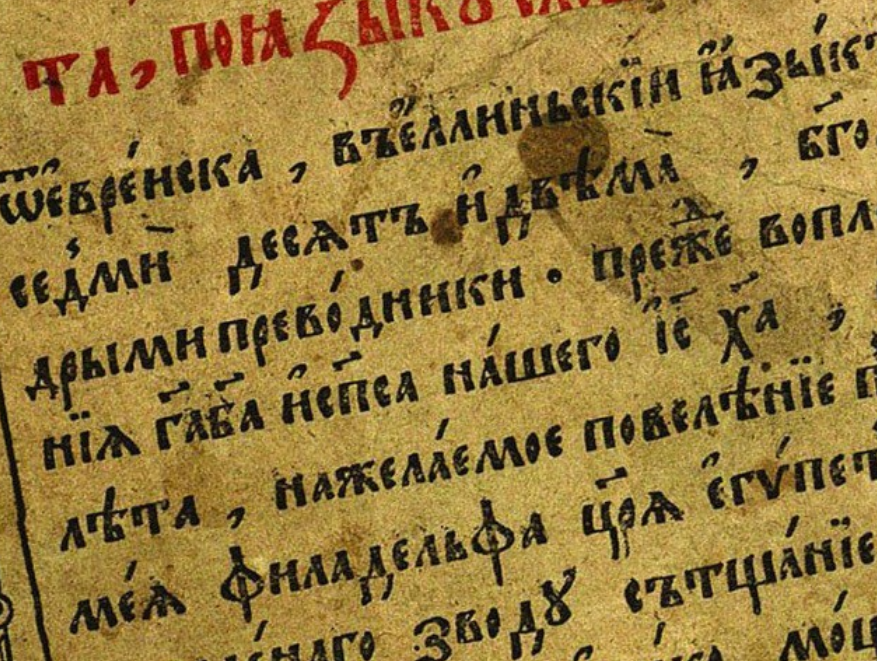 та, поѧзы
ѿевре́йска, въеллиньскїй ꙗ҆зы́к
се́дмй десѧтъ и҆двѣма̀, бг҃о
дрыми прево́дники · преже вопл
нїѧ гд҃абг҃а и҆сп҃са на́шего і҆с хр҃а,
лѣта, нажела́емое повелѣнїе
ме́ѧ филаделъфа цр҃ѧ е҆гѵ́пет
зводꙋ сътща́нїе